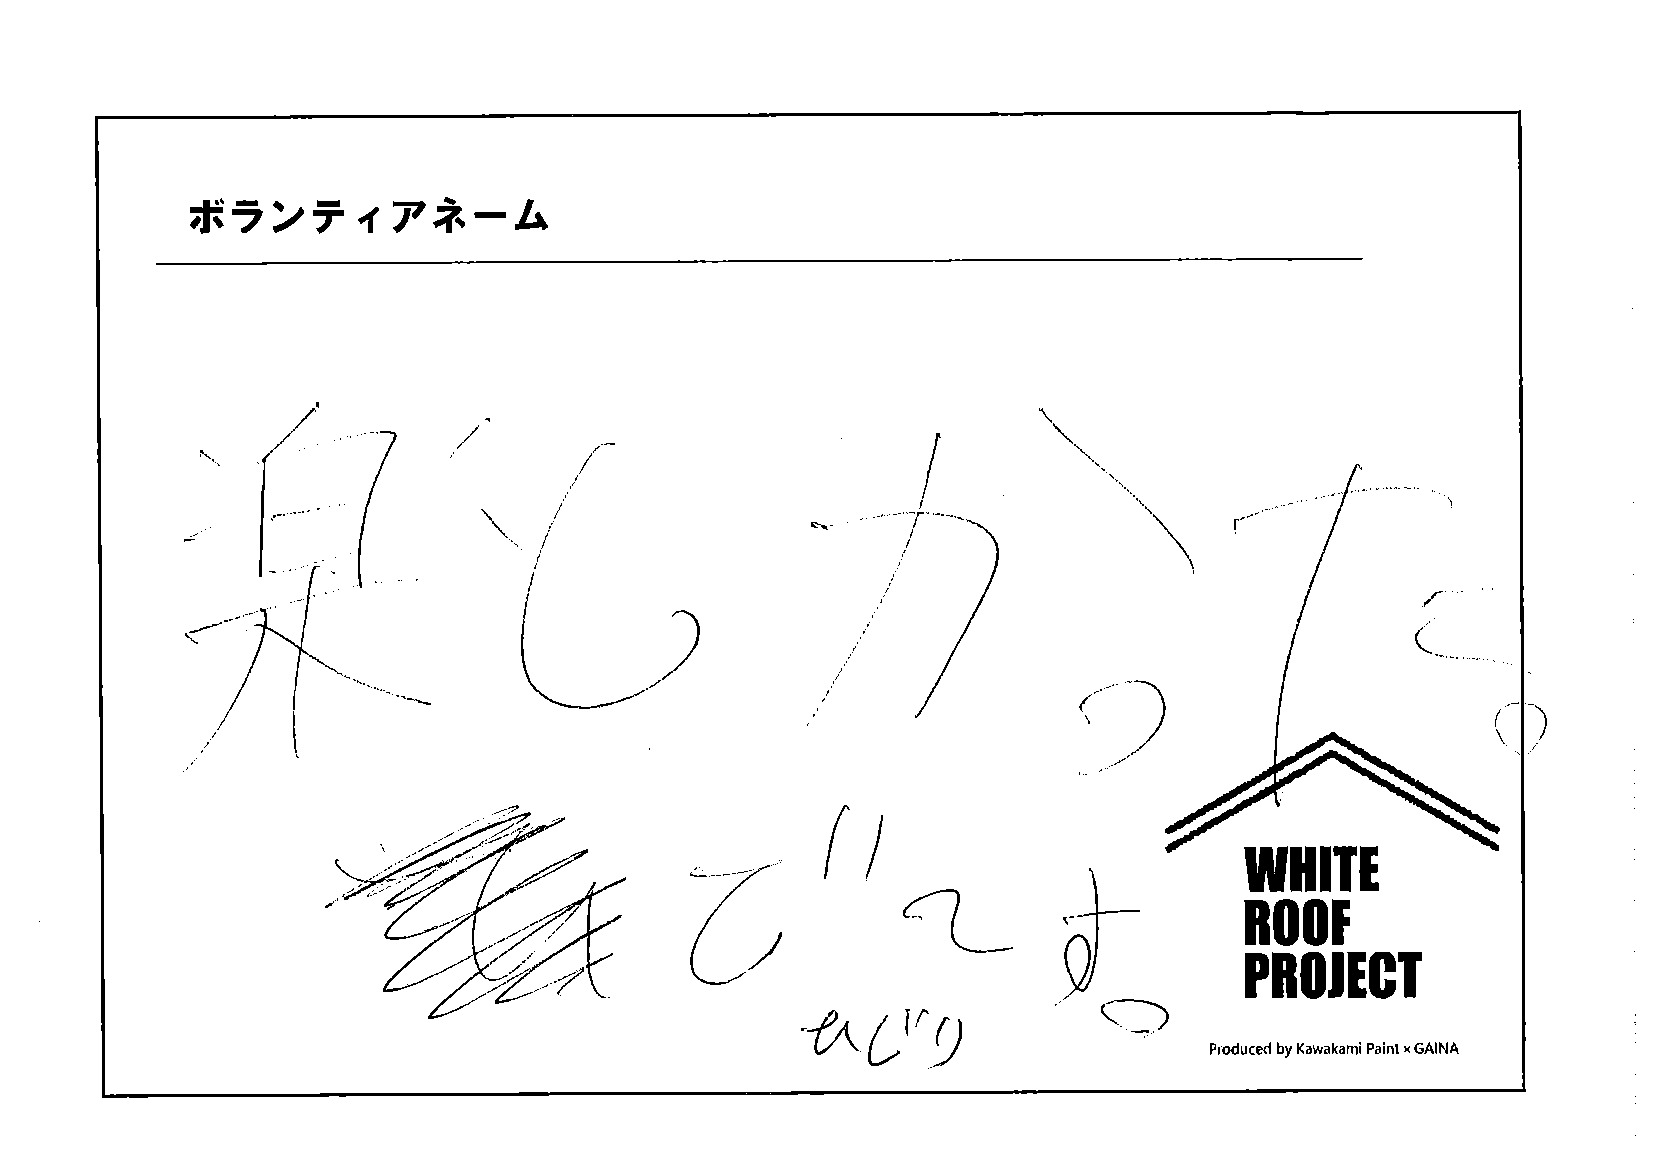 ボランティアネーム
楽しかった。
で〜す。
WHITE
ROOF
PROJECT
Produced by Kawakami Paint × GAINA